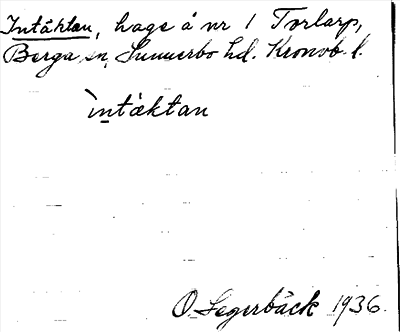 Intäktan, hage å nr 1 Torlarp,
Berga sn, Sunnerbo hd. Kronob. l.
ìntäktan
O. Segerbäck 1936.